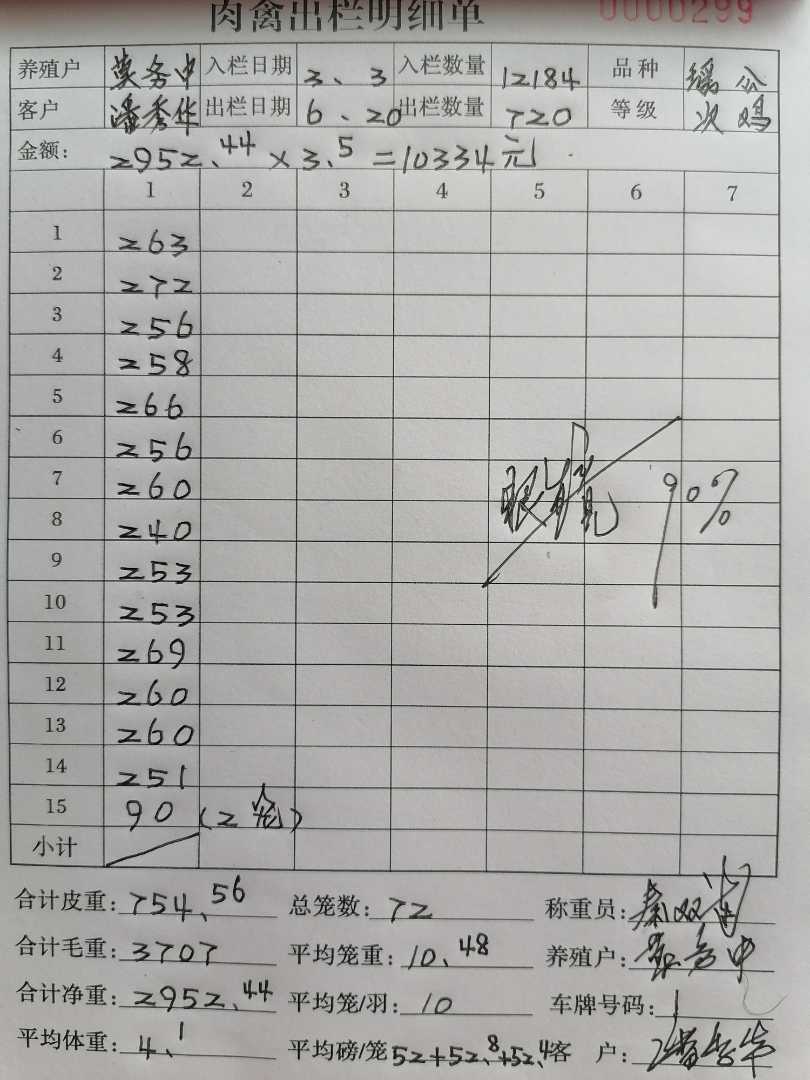 肉禽出栏明细单 0000299
养殖户 莫务中 入栏日期 3、3 入栏数量 12184 品种 瑶公
客户 潘秀华 出栏日期 6、20 出栏数量 720 等级 次鸡
金额: 2952.44 × 3.5 =10334元
1 2 3 4 5 6 7
1 263
2 272
3 256
4 258
5 266
6 256
7 260
8 240
9 253
10 253
11 269
12 260
13 260
14 251
15 90 (2笼)
小计
90%
合计皮重: 754.56 总笼数: 72 称重员:
合计毛重: 3707 平均笼重: 10.48 养殖户: 莫务中
合计净重: 2952.44 平均笼/羽: 10 车牌号码: 1
平均体重: 4.1 平均磅/笼 52+52.8+52.4 客 户: 潘秀华